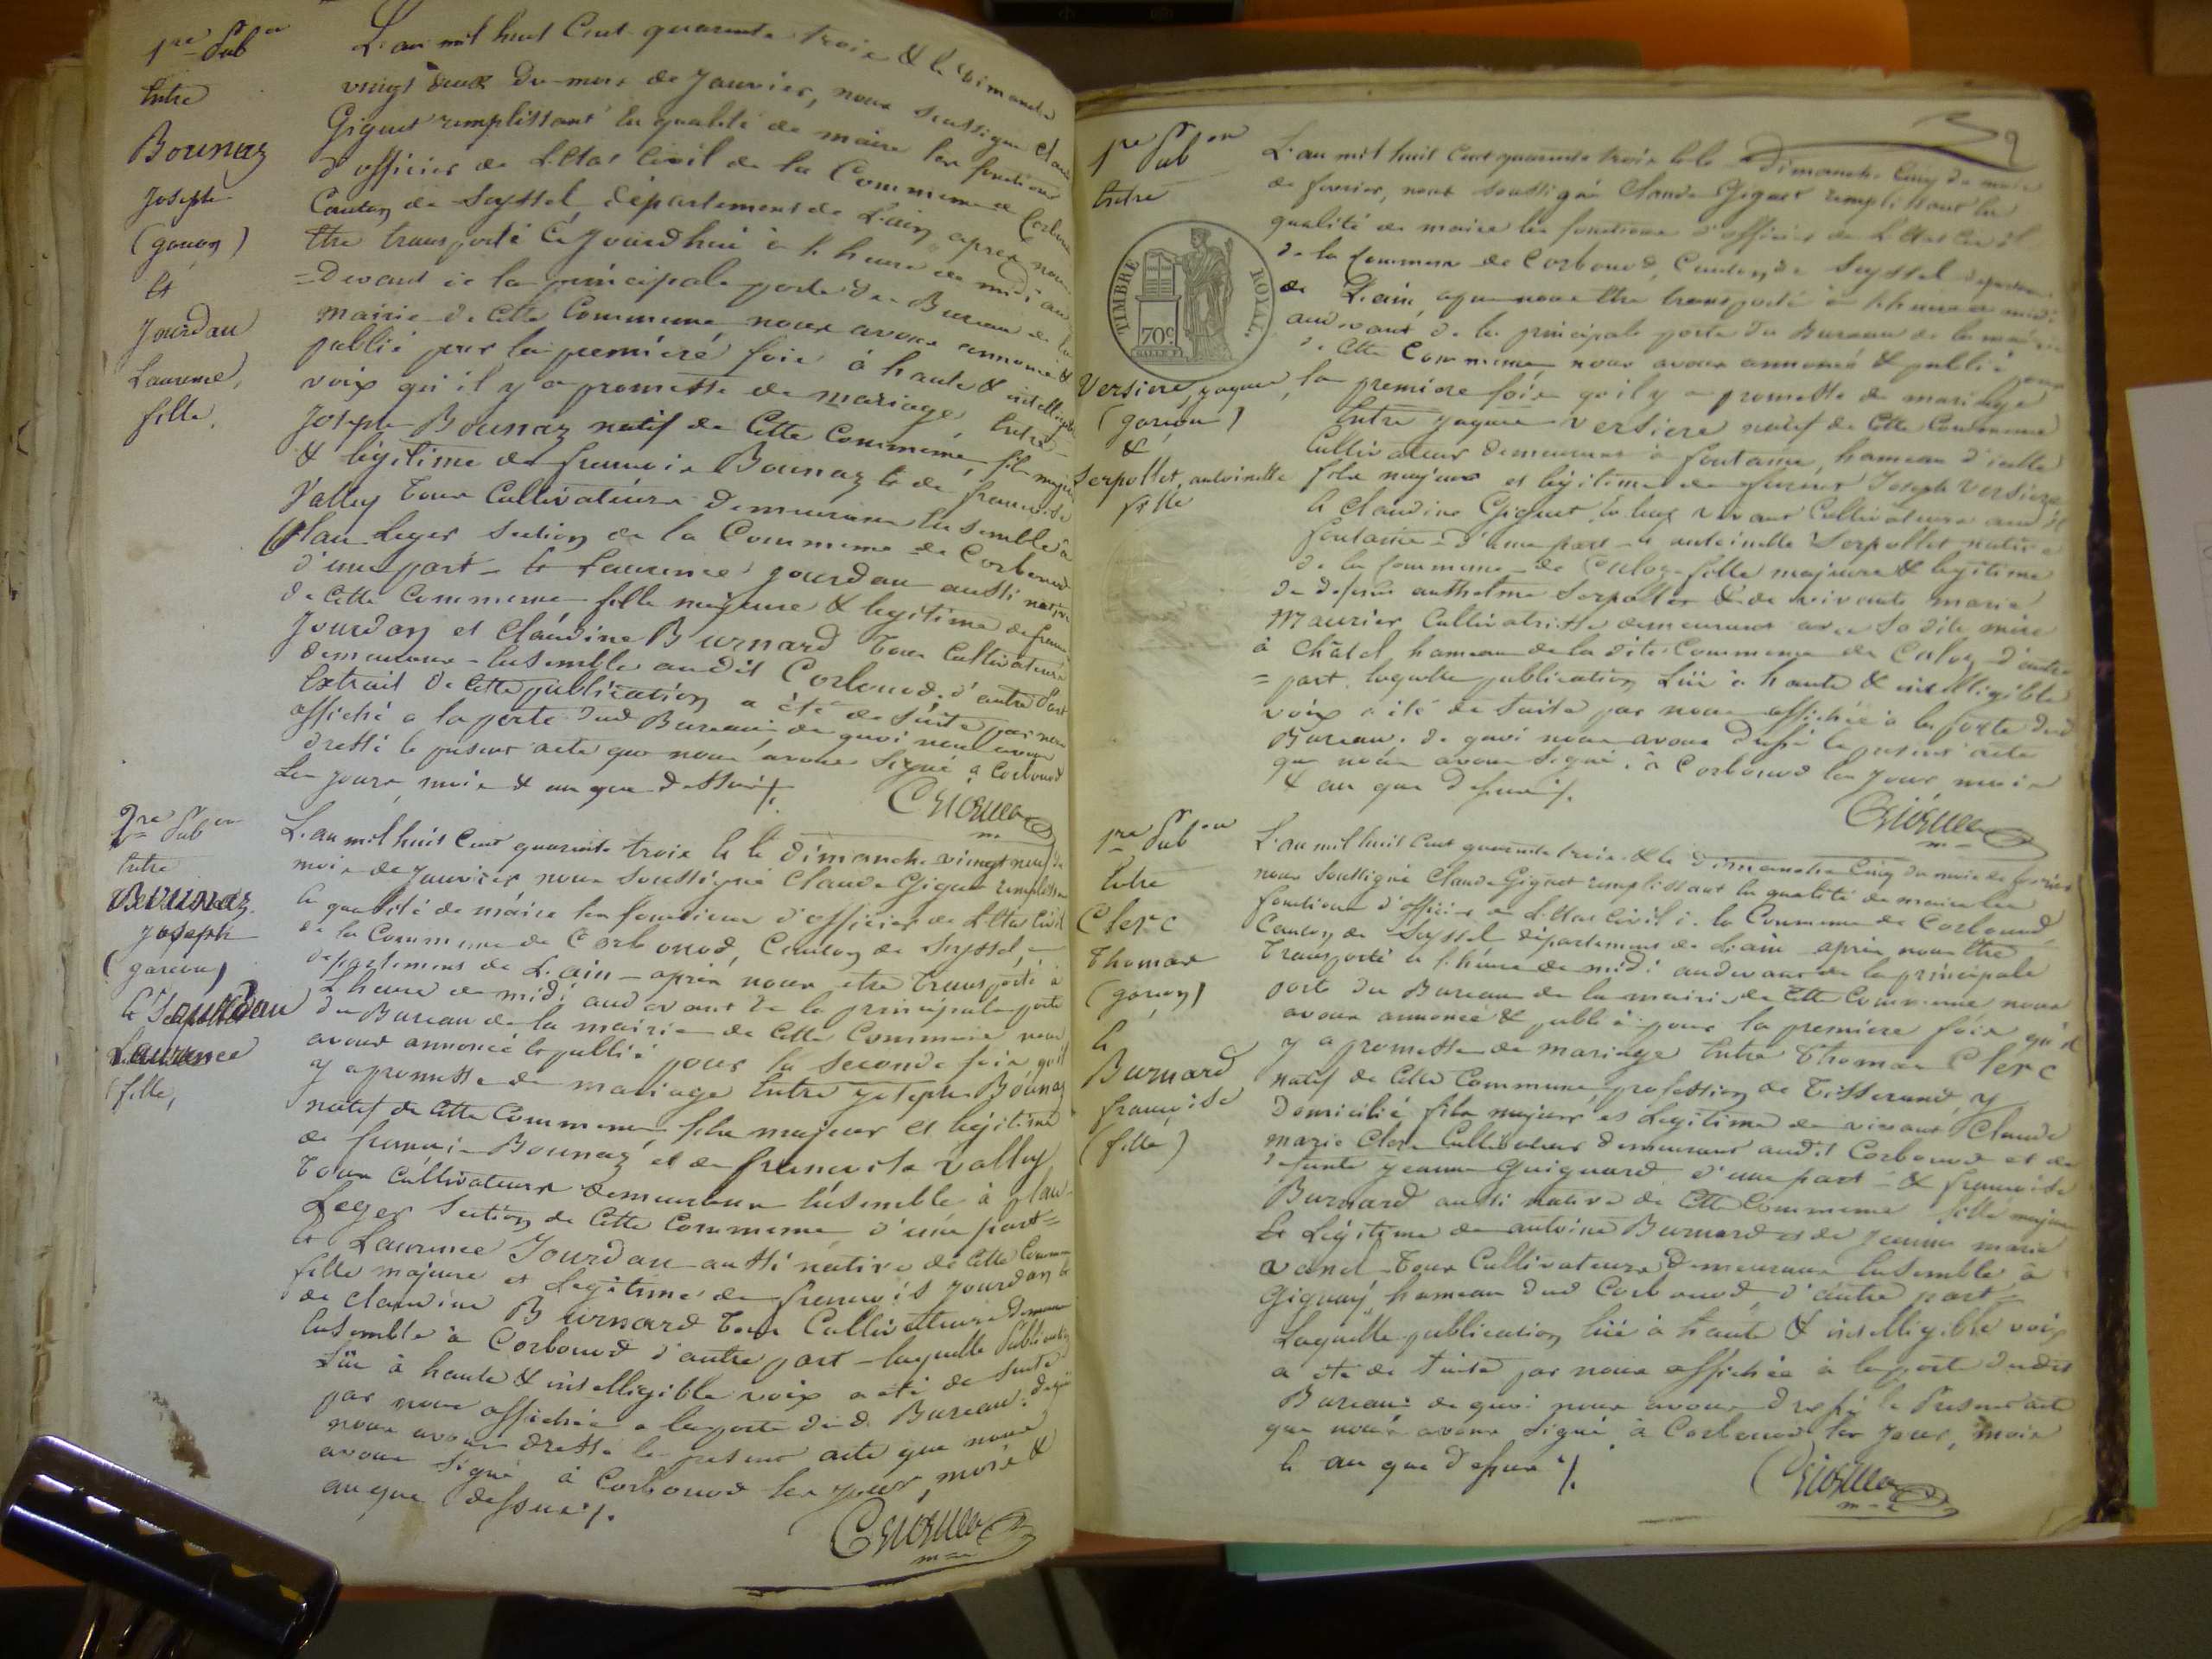 1re Pubon
Entre
Bounaz
Joseph
(garçon)
et
Jourdan
Laurence,
fille,
L'an mil huit Cent quarante trois & le Dimanche
vingt deux du mois de Janvier, nous soussigné Claude
Giguet remplissant la qualité de maire les fonctions
d'officier de L'Etat Civil de la Commune de Corbonod
Canton de Seyssel, département de L'ain, après nous
être transporté ce Jourd'hui à l'heure de midi au
=devant de la principale porte du Bureau de la
mairie de Cette Commune nous avons annoncé &
publié pour la première fois à haute & intelligible
voix qu'il y a promesse de mariage, Entre
Joseph Bounaz natif de Cette Commune, fils majeur
& légitime de francois Bounaz et de francoise
Valley tous Cultivateurs demeurans Ensemble à
Plan Leger Section de la Commune de Corbonod
d'une part - et Laurence Jourdan aussi native
de Cette Commune fille majeure & legitime de francois
Jourdan et Claudine Burnard tous Cultivateurs
demeurans Ensemble audit Corbonod d'autre Part
Extrait de Cette publication a été de suite par nous
affiché a la porte dud Bureau, de quoi nous avons
dressé le présent acte que nous avons Signé a Corbonod
Les jours, mois & an que dessus /.
Giguet
m=
2me Pubon
Entre
Bounaz
Joseph
(garçon)
et Jourdan
Laurence
(fille,
L'an mil huit Cent quarante trois & le dimanche vingt neuf du
mois de Janvier, nous Soussigné Claude Giguet remplissant
la qualité de maire les fonctions d'officier de L'Etat Civil
de la Commune de Corbonod, Canton de Seyssel,
département de L'ain - après nous être transporté à
L'heure de midi audevant de la principale porte
du Bureau de la mairie de Cette Commune nous
avons annoncé et publié pour la seconde fois qu'il
y a promesse de mariage Entre Joseph Bounaz
natif de Cette Commune, fils majeur et légitime
de francois Bounaz et de francoise Valley
tous Cultivateurs demeurans Ensemble à Plan
Leger Section de Cette Commune, d'une part =
et Laurence Jourdan aussi native de Cette Commune
fille majeure et Legitime de francois Jourdan et
de Claudine Burnard tous Cultivateurs demeurans
Ensemble à Corbonod d'autre part - laquelle Publication
Lüe à haute & intelligible voix a été de Suite
par nous affichée a la porte dud Bureau. de quoi
nous avons dressé le présent acte que nous
avons Signé, à Corbonod les jours, mois &
an que dessus /.
Giguet
m=
32
1re Pubon
Entre
TIMBRE ROYAL
70c
Versiere, Jaques,
(garçon)
&
Serpollet, antoinette
fille
L'an mil huit Cent quarante trois & le Dimanche Cinq du mois
de fevrier, nous soussigné Claude Giguet remplissant la
qualité de maire les fonctions d'officier de L'Etat Civil
de la Commune de Corbonod, Canton de Seyssel département
de L'ain, après nous être transporté à l'heure de midi
audevant de la principale porte du Bureau de la mairie
de Cette Commune, nous avons annoncé & publié pour
la première fois qu'il y a promesse de mariage
Entre Jaques Versiere natif de Cette Commune
Cultivateur demeurant à fontaine, hameau d'icelle
fils majeur et légitime de Joseph Versiere
& Claudine Giguet, Cultivateurs audit
fontaine d'une part - & antoinette Serpollet native
de la Commune de Culoz fille majeure & legitime
de defunt anthelme Serpollet & de vivante marie
Maurier Cultivatrice demeurant avec Sa dite mère
à Châtel hameau de la dite Commune de Culoz, d'autre
=part. laquelle publication Lüe à haute & intelligible
voix a été de Suite par nous affichée à la porte dud
Bureau. de quoi nous avons dressé le présent acte
que nous avons Signé, à Corbonod les jour, mois
& an que dessus /.
Giguet
m=
1re Pubon
Entre
Clerc
Thomas
(garçon)
&
Burnard
françoise
(fille)
L'an mil huit Cent quarante trois & le dimanche Cinq du mois de fevrier
nous Soussigné Claude Giguet remplissant la qualité de maire les
fonctions d'officier de L'Etat civil de la Commune de Corbonod
Canton de Seyssel département de L'ain après nous être
Transporté à l'heure de midi audevant de la principale
porte du Bureau de la mairie de Cette Commune nous
avons annoncé & publié pour la première fois qu'il
y a promesse de mariage Entre Thomas Clerc
natif de Cette Commune, profession de Tisserand, y
domicilié fils majeur et Legitime de vivant Claude
marie Clerc Cultivateur demeurant audit Corbonod et de
defunte Jeanne Guignard, d'une part - & francoise
Burnard aussi native de Cette Commune fille majeure
et Légitime de antoine Burnard et de Jeanne marie
Vanel tous Cultivateurs demeurans Ensemble à
Gignay hameau dud Corbonod, d'autre part =
Laquelle publication lüe à haute & intelligible voix
a été de Suite par nous affichée à la porte dudit
Bureau: de quoi nous avons dressé le Présent acte
que nous avons Signé à Corbonod les jour, mois
& an que dessus /.
Giguet
m=